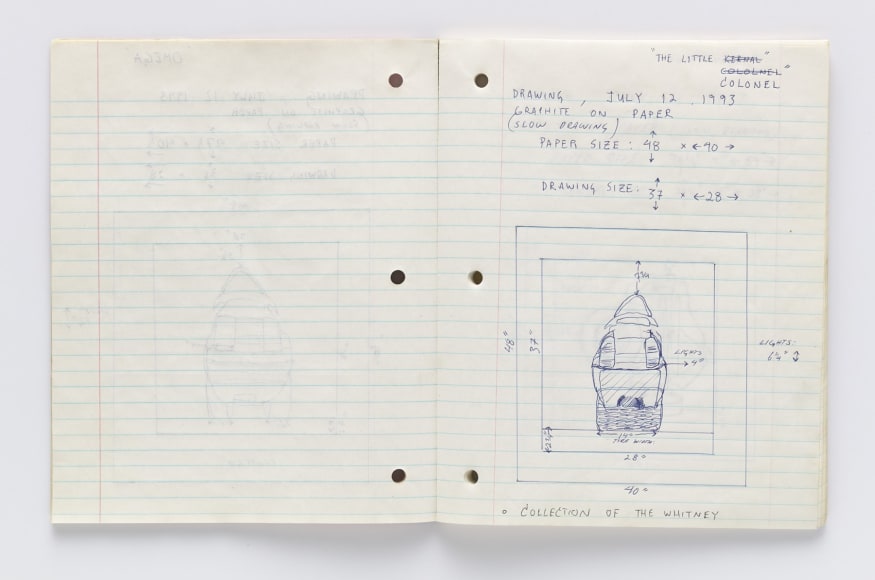 "THE LITTLE KERNAL"
COLOLNEL"
COLONEL
DRAWING, JULY 12, 1993
GRAPHITE ON PAPER
(SLOW DRAWING)
PAPER SIZE: 48 × 40
DRAWING SIZE: 37 × 28
48"
37"
LIGHTS
4"
LIGHTS:
14"
TIRE WIDTH
28"
40"
• COLLECTION OF THE WHITNEY